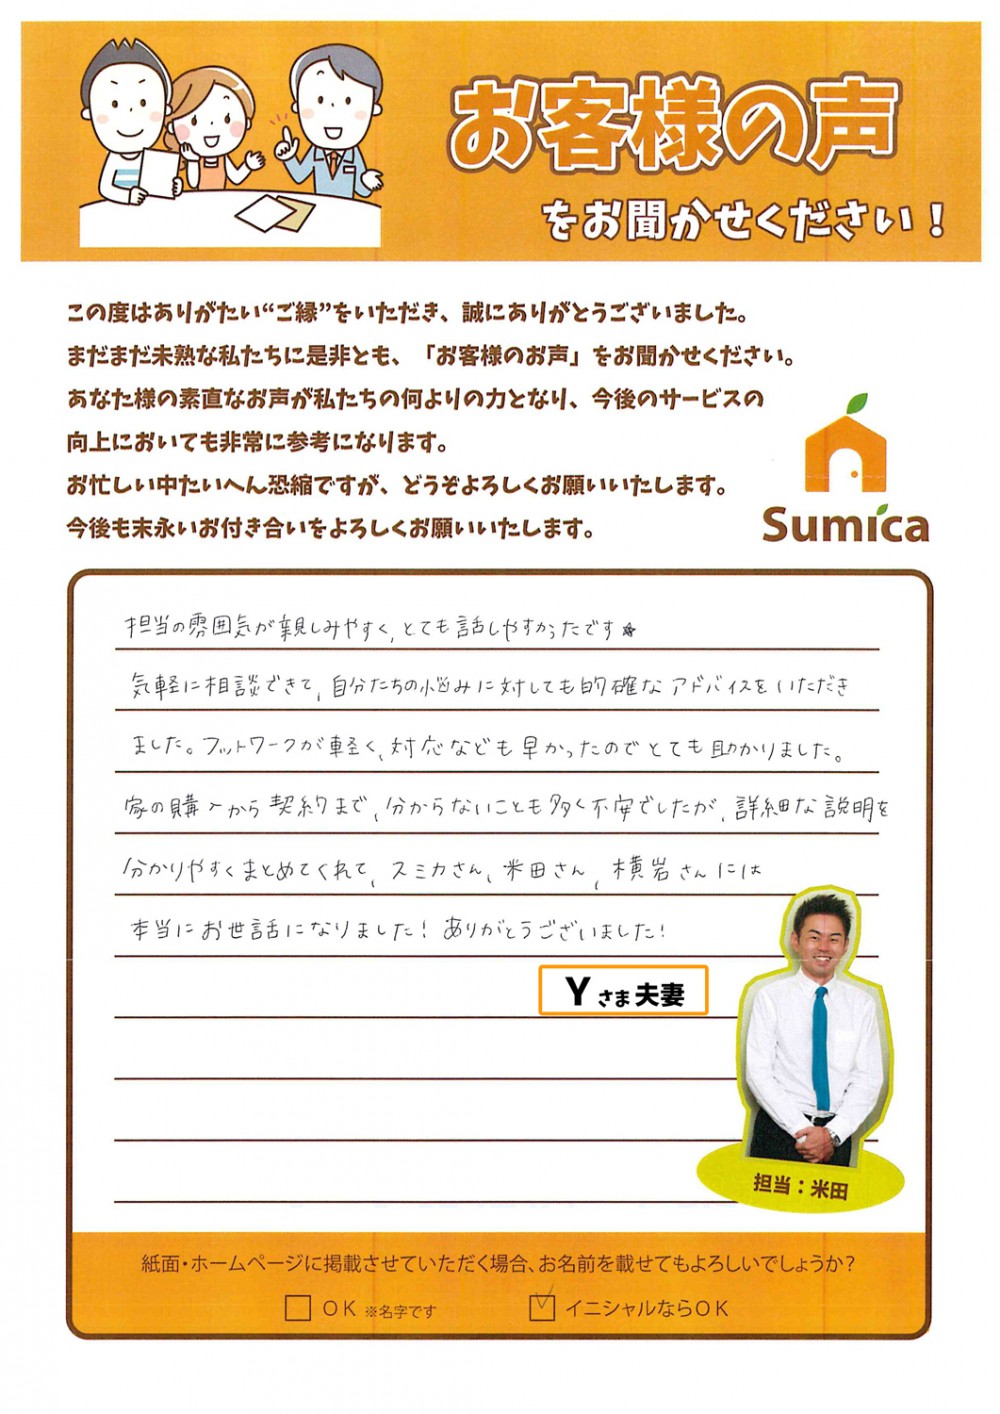 お客様の声
をお聞かせください！
この度はありがたい“ご縁”をいただき、誠にありがとうございました。
まだまだ未熟な私たちに是非とも、「お客様のお声」をお聞かせください。
あなた様の素直なお声が私たちの何よりの力となり、今後のサービスの
向上においても非常に参考になります。
お忙しい中たいへん恐縮ですが、どうぞよろしくお願いいたします。
今後も末永いお付き合いをよろしくお願いいたします。
Sumica
担当の雰囲気が親しみやすく、とても話しやすかったです★
気軽に相談できて、自分たちの悩みに対しても的確なアドバイスをいただき
ました。フットワークが軽く、対応なども早かったのでとても助かりました。
家の購入から契約まで、分からないことも多く不安でしたが、詳細な説明を
分かりやすくまとめてくれて、スミカさん、米田さん、横岩さんには
本当にお世話になりました！ありがとうございました！
Yさま夫妻
担当：米田
紙面・ホームページに掲載させていただく場合、お名前を載せてもよろしいでしょうか？
OK ※名字です
イニシャルならOK